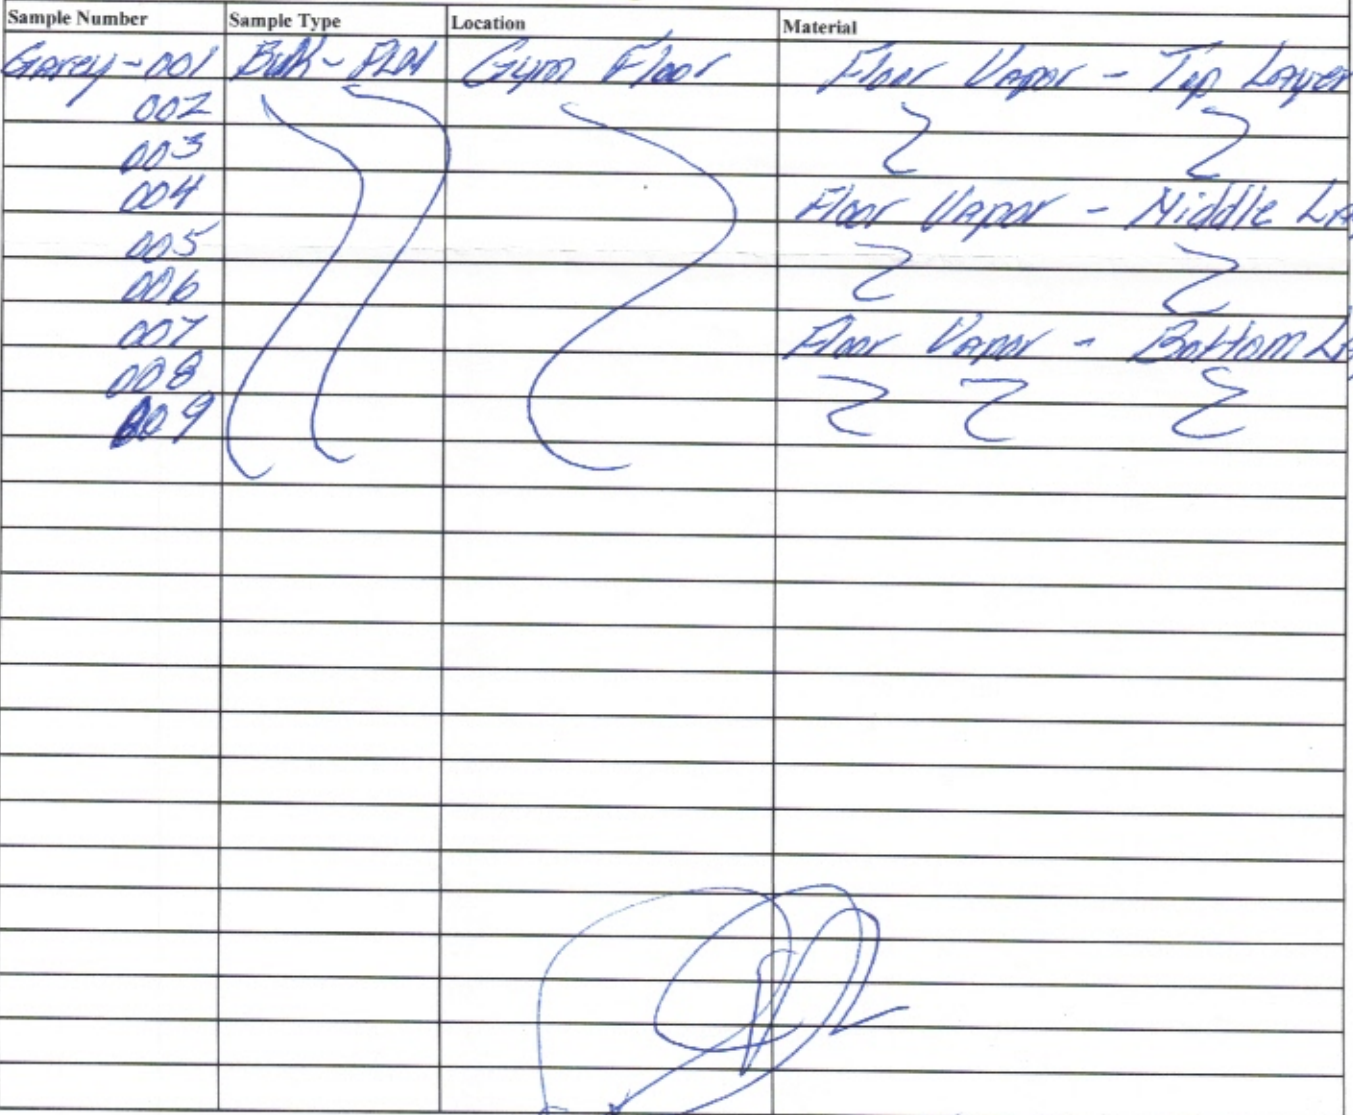 Sample Number Sample Type Location Material
Garey-001 Bulk-PLM Gym Floor Floor Vapor - Top Layer
002
003
004 Floor Vapor - Middle La
005
006
007 Floor Vapor - Bottom La
008
009